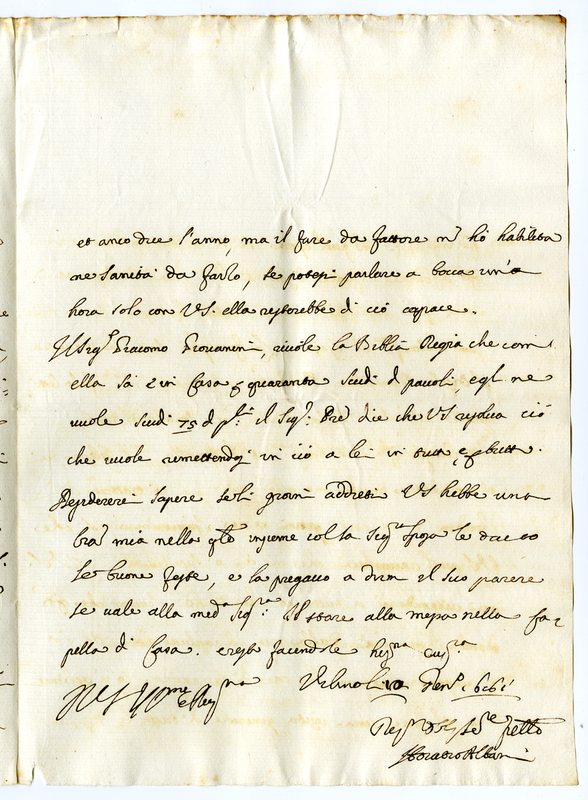 et anco due l'anno, ma il fare da fattore nō hò habilita
ne sanità da farlo, se potessi parlare a bocca un'a
hora solo con V.S. ella resterebbe di ciò capace.
Il Sigr. Giacomo Giovannini, vuole la Bibbia Regia che com
ella sà è in Casa quaranta scudi d pauoli, egl ne
vuole scudi 75 d il Sigr. dice che VS reduca ciò
che vuole rimettendosi in ciò a lei in tutto e tutto.
Desidererei sapere se li giorni addietro VS hebbe una
mia nella insieme col la Sigra sposa le davo
le buone feste, e la pregavo a dirm il suo parere
se vale alla meda Sigra il stare alla messa nella Ca=
pella di Casa. e resto facendole
D V S Illma e Revma Urbino li 10 Genro 1661
Serre
Horatio Albani